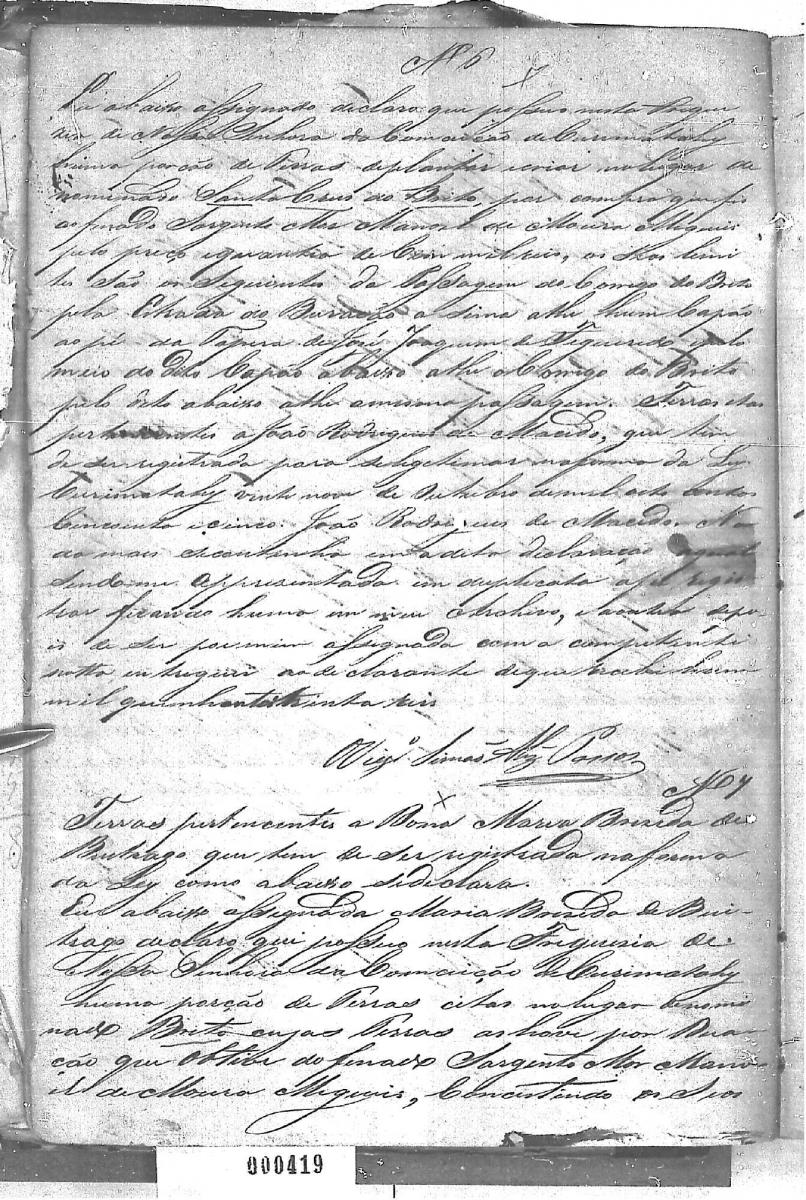 Nº 6
Eu abaixo assignado declaro que possuo nesta Fregue
zia de Nossa Senhora da Conceição de Curimatahy
huma porção de Terras de plantar e criar no lugar de
nominado Santa Cruz do Brito, por compra que fis
ao finado Sargento Mor Manoel de Moura
pelo preço e quantia de Cem mil reis, os limi
tes são os Seguintes da Passagem do Corrego do Brito
pela Estrada do assima athe hum Capão
ao pé da Tapera de José Joaquim de Figueredo, e pelo
meio do dito Capão abaixo athe o Corrego do Brito
pelo dito abaixo athe a mesma passagem. Terras etas
pertencentes a João Rodrigues de Macedo, que tem
de ser registrada para se legetimar na forma da Ley
Curimatahy vinte nove de Outubro de mil oito centos
Cincoenta e cinco. João Rodrigues de Macedo. Na
da mais se continha em a dita declaração a qual
sendo-me appresentada em duplicata a fis regis
trar ficando huma em meu Archivo, e a outra depo-
is de ser por mim assignada com a competente
notta entreguei ao declarante de que recebi hum
mil quinhentos trinta reis
O Vigº Simão
Nº 7
Terras pertencentes a Dona Maria de
Buitrago que tem de ser registrada na forma
da Ley como abaixo se declara.
Eu abaixo assignada Maria de Bui-
trago declaro que possuo nesta Freguesia de
Nossa Senhora da Conceição de Curimatahy
huma porção de Terras citas no lugar denomi
nado Brito cujas Terras as houve por Doa-
ção que Obtive do finado Sargento Mor Mano
el de Moura Concistindo os Seos
000419